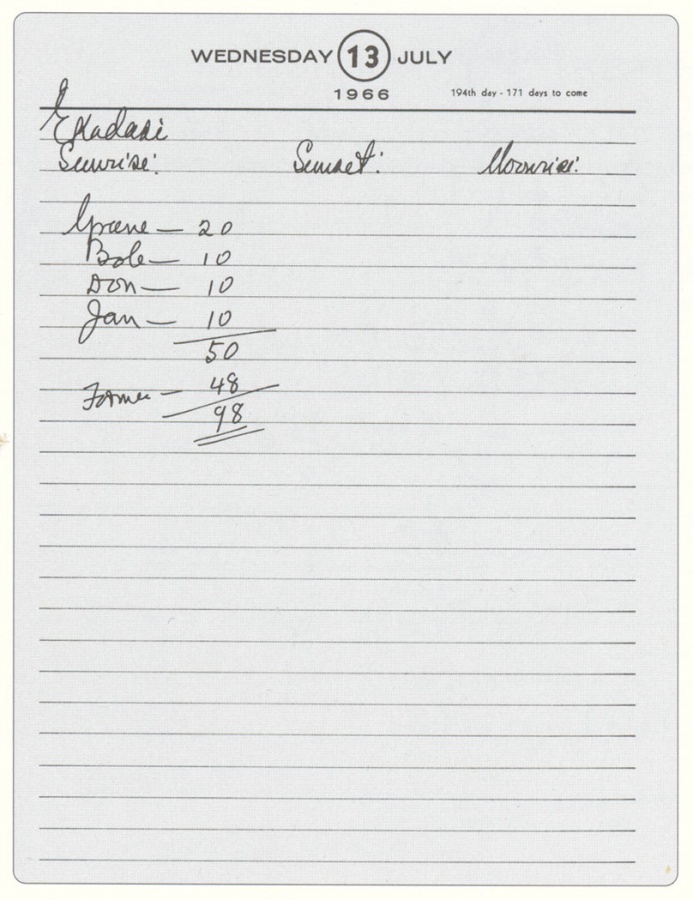 WEDNESDAY 13 JULY
1966 194th day - 171 days to come
Ekadasi
Sunrise: Sunset: Moonrise:
Greene — 20
Bob — 10
Don — 10
Jan — 10
50
Former — 48
98